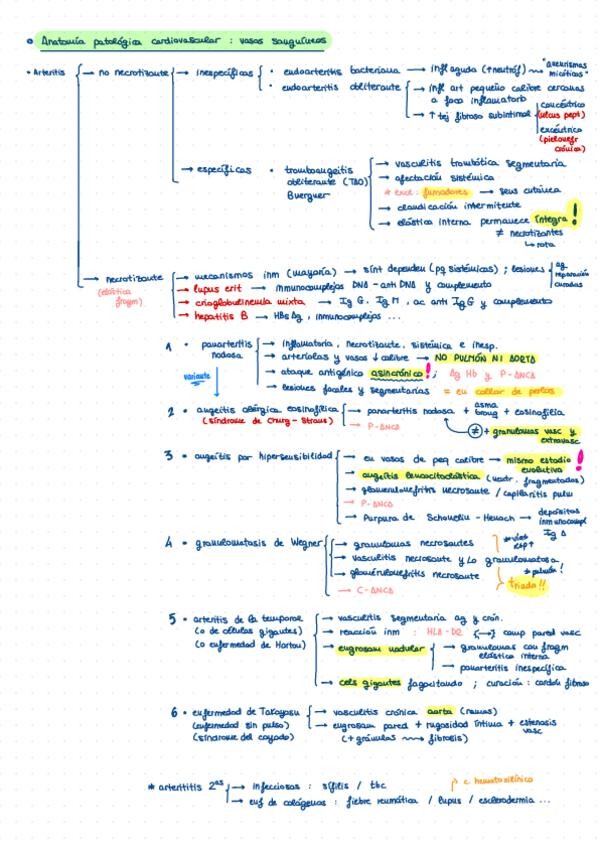 Anatomía patológica cardiovascular : vasos sanguíneos
• Arteritis → no necrotizante → inespecíficas • endoarteritis bacteriana → infl aguda (↑neutróf) ~ "aneurismas micóticas"
• endoarteritis obliterante → infl art pequeño calibre cercanas a foco inflamatorio
→ ↑ tej fibroso subintimal concéntrico (ulcus pept)
excéntrico (pielonefr crónica)
→ específicas • tromboangeitis obliterante (TAO) Buerguer → vasculitis trombótica segmentaria
→ afectación sistémica
* excl : fumadores → seus cutánea
→ claudicación intermitente
→ elástica interna permanece íntegra !
≠ necrotizantes
↳ rota
→ necrotizante (elástica fragm) → mecanismos inm (mayoría) → sínt dependen (pq sistémicas) ; lesiones ag reparación curadas
→ lupus erit → inmunocomplejos DNA - anti DNA y complemento
→ crioglobulinemia mixta → Ig G, Ig M, ac anti Ig G y complemento
→ hepatitis B → HBsAg, inmunocomplejos ...
1 • panarteritis nodosa → inflamatoria, necrotizante, sistémica e inesp.
→ arteriolas y vasos ↓ calibre → NO PULMÓN NI AORTA
→ ataque antigénico asincrónico ! ; Ag Hb y P-ANCA
→ lesiones focales y segmentarias = en collar de perlas
variante
2 • angeítis alérgica eosinofílica (síndrome de Churg - Straus) → panarteritis nodosa + asma bronq + eosinofilia
→ P-ANCA
≠ + granulomas vasc y extravasc
3 • angeítis por hipersensibilidad → en vasos de peq calibre → mismo estadio evolutivo !
→ angeítis leucocitoclástica (neutr. fragmentados)
→ glomerulonefritis necrosante / capilaritis pulm
→ P-ANCA
→ Púrpura de Schonelin - Henoch → depósitos inmunocompl Ig A
4 • granulomatosis de Wegner → granulomas necrosantes * vías resp ↑
→ vasculitis necrosante y/o granulomatosa * pulmón !
→ glomérulonefritis necrosante
→ C-ANCA
triada !!
5 • arteritis de la temporal (o de células gigantes) (o enfermedad de Horton) → vasculitis segmentaria ag y crón.
→ reacción inm : HLA-DR comp pared vasc
→ engrosam nodular → granulomas con fragm elástica interna
→ panarteritis inespecífica
→ cels gigantes fagocitando ; curación : cordón fibroso
6 • enfermedad de Takayasu (enfermedad sin pulso) (síndrome del cayado) → vasculitis crónica aorta (ramas)
→ engrosam pared + rugosidad íntima + estenosis vasc
(+ gránulos ~> fibrosis)
* arteritis 2as → infecciosas : sífilis / tbc
→ enf de colágenos : fiebre reumática / lupus / esclerodermia ...